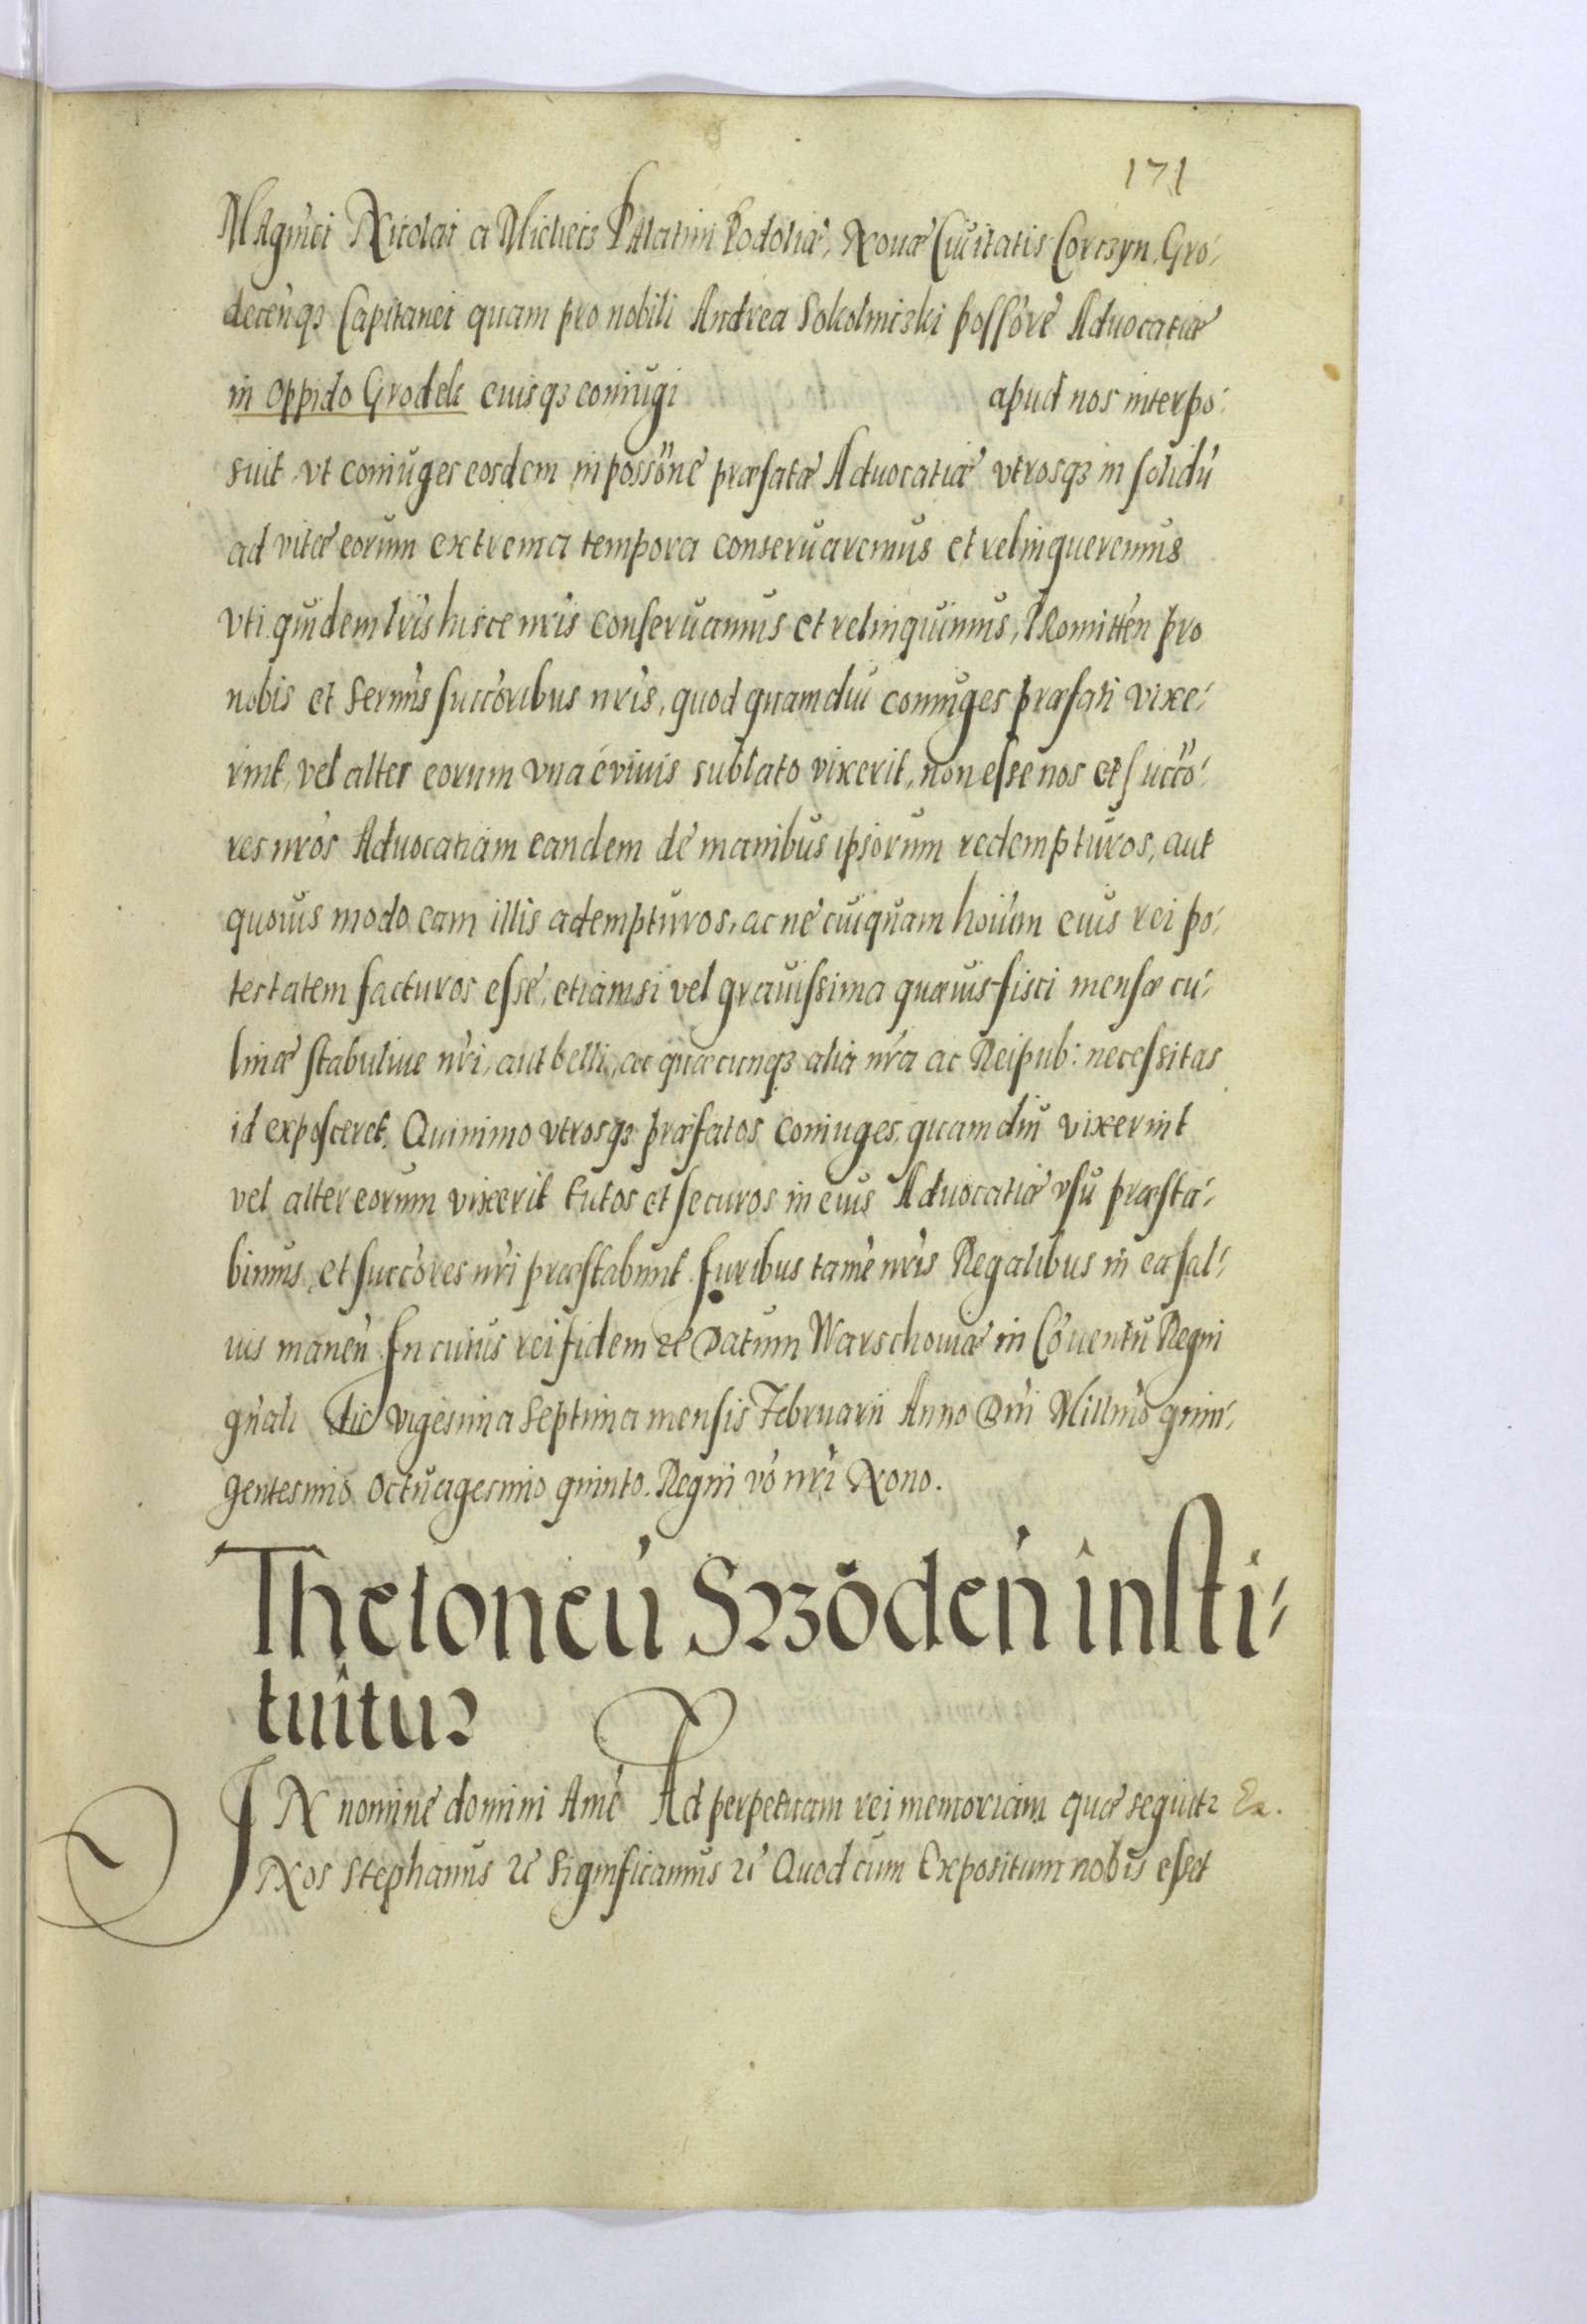 171
MAgnici Nicolai a Mieliecz PAlatini Podoliæ, Nouæ Ciuitatis Corczyn, Gro-
decenq3 Capitanei quam pro nobili Andrea Sokolniczki possore Aduocatiæ
in oppido Grodek eiusq3 coniugi apud nos interpo-
suit, vt coniuges eosdem in possone præfatæ Aduocatiæ vtrosq3 in solidu
ad vitæ eorum extrema tempora conseruaremus et relinqueremus
vti quidem lris hisce nris conseruamus et relinquimus, PRomitten pro
nobis et Sermis succoribus nris, quod quamdiu coniuges præfati vixe-
rint, vel alter eorum vna é viuis sublato vixerit, non esse nos et succo-
res nros Aduocatiam eandem de manibus ipsorum redempturos, aut
quouis modo eam illis adempturos, ac ne cuiquam hoium eius rei po-
testatem facturos esse, etiamsi vel grauissima quæuis fisci mensæ cu-
linæ stabuliue nri, aut belli, ac quæcunq3 alia nra ac Reipub: necessitas
id exposceret, Quinimo vtrosq3 præfatos coniuges, quamdiu vixerint
vel alter eorum vixerit tutos et securos in eius Aduocatiæ vsu præsta-
bimus, et succores nri præstabunt. Iuribus tame nris Regalibus in ea sal-
uis manen In cuius rei fidem etc Datum Warschouiæ in Couentu Regni
gnali die vigesima Septima mensis Februarii Anno Dni Millmo quin-
gentesimo Octuagesimo quinto. Regni vo nri Nono.
Theloneu Srzoden insti-
tuitur
IN nomine domini Ame Ad perpetuam rei memoriam quæ sequitr Ex.
Nos Stephanus etc Significamus etc Quod cum Expositum nobis esset